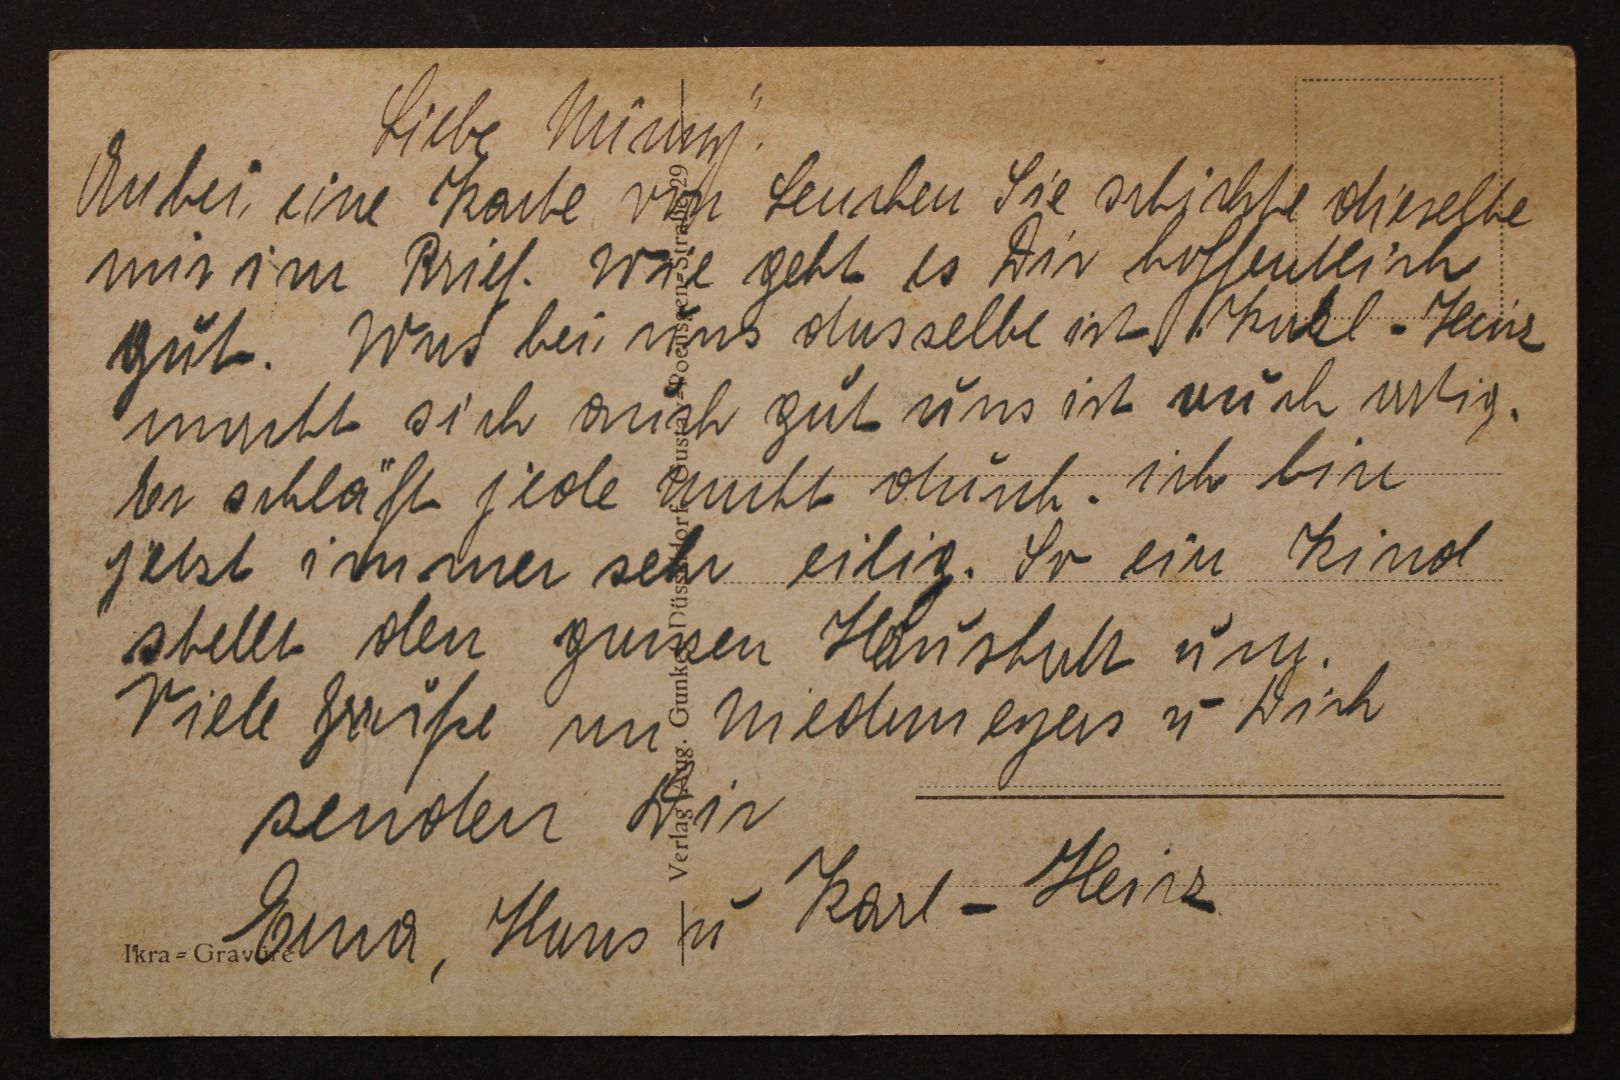 Liebe Minny".
Anbei, eine Karte von Lenchen Sie schickte dieselbe
mir im Brief. Wie geht es Dir hoffentlich
gut. Was bei uns dasselbe ist. Karl-Heinz
macht sich auch gut uns ist auch artig.
Er schläft jede Nacht durch. ich bin
jetzt immer sehr eilig. So ein Kind
stellt den ganzen Haushalt um.
Viele Grüße an Niedermeyers u Dich
senden Dir
Erna, Hans u Karl-Heinz
Ikra=Gravüre
Verlag Aug. Gunkel, Düsseldorf, Gustav=Poensgen=Straße 29